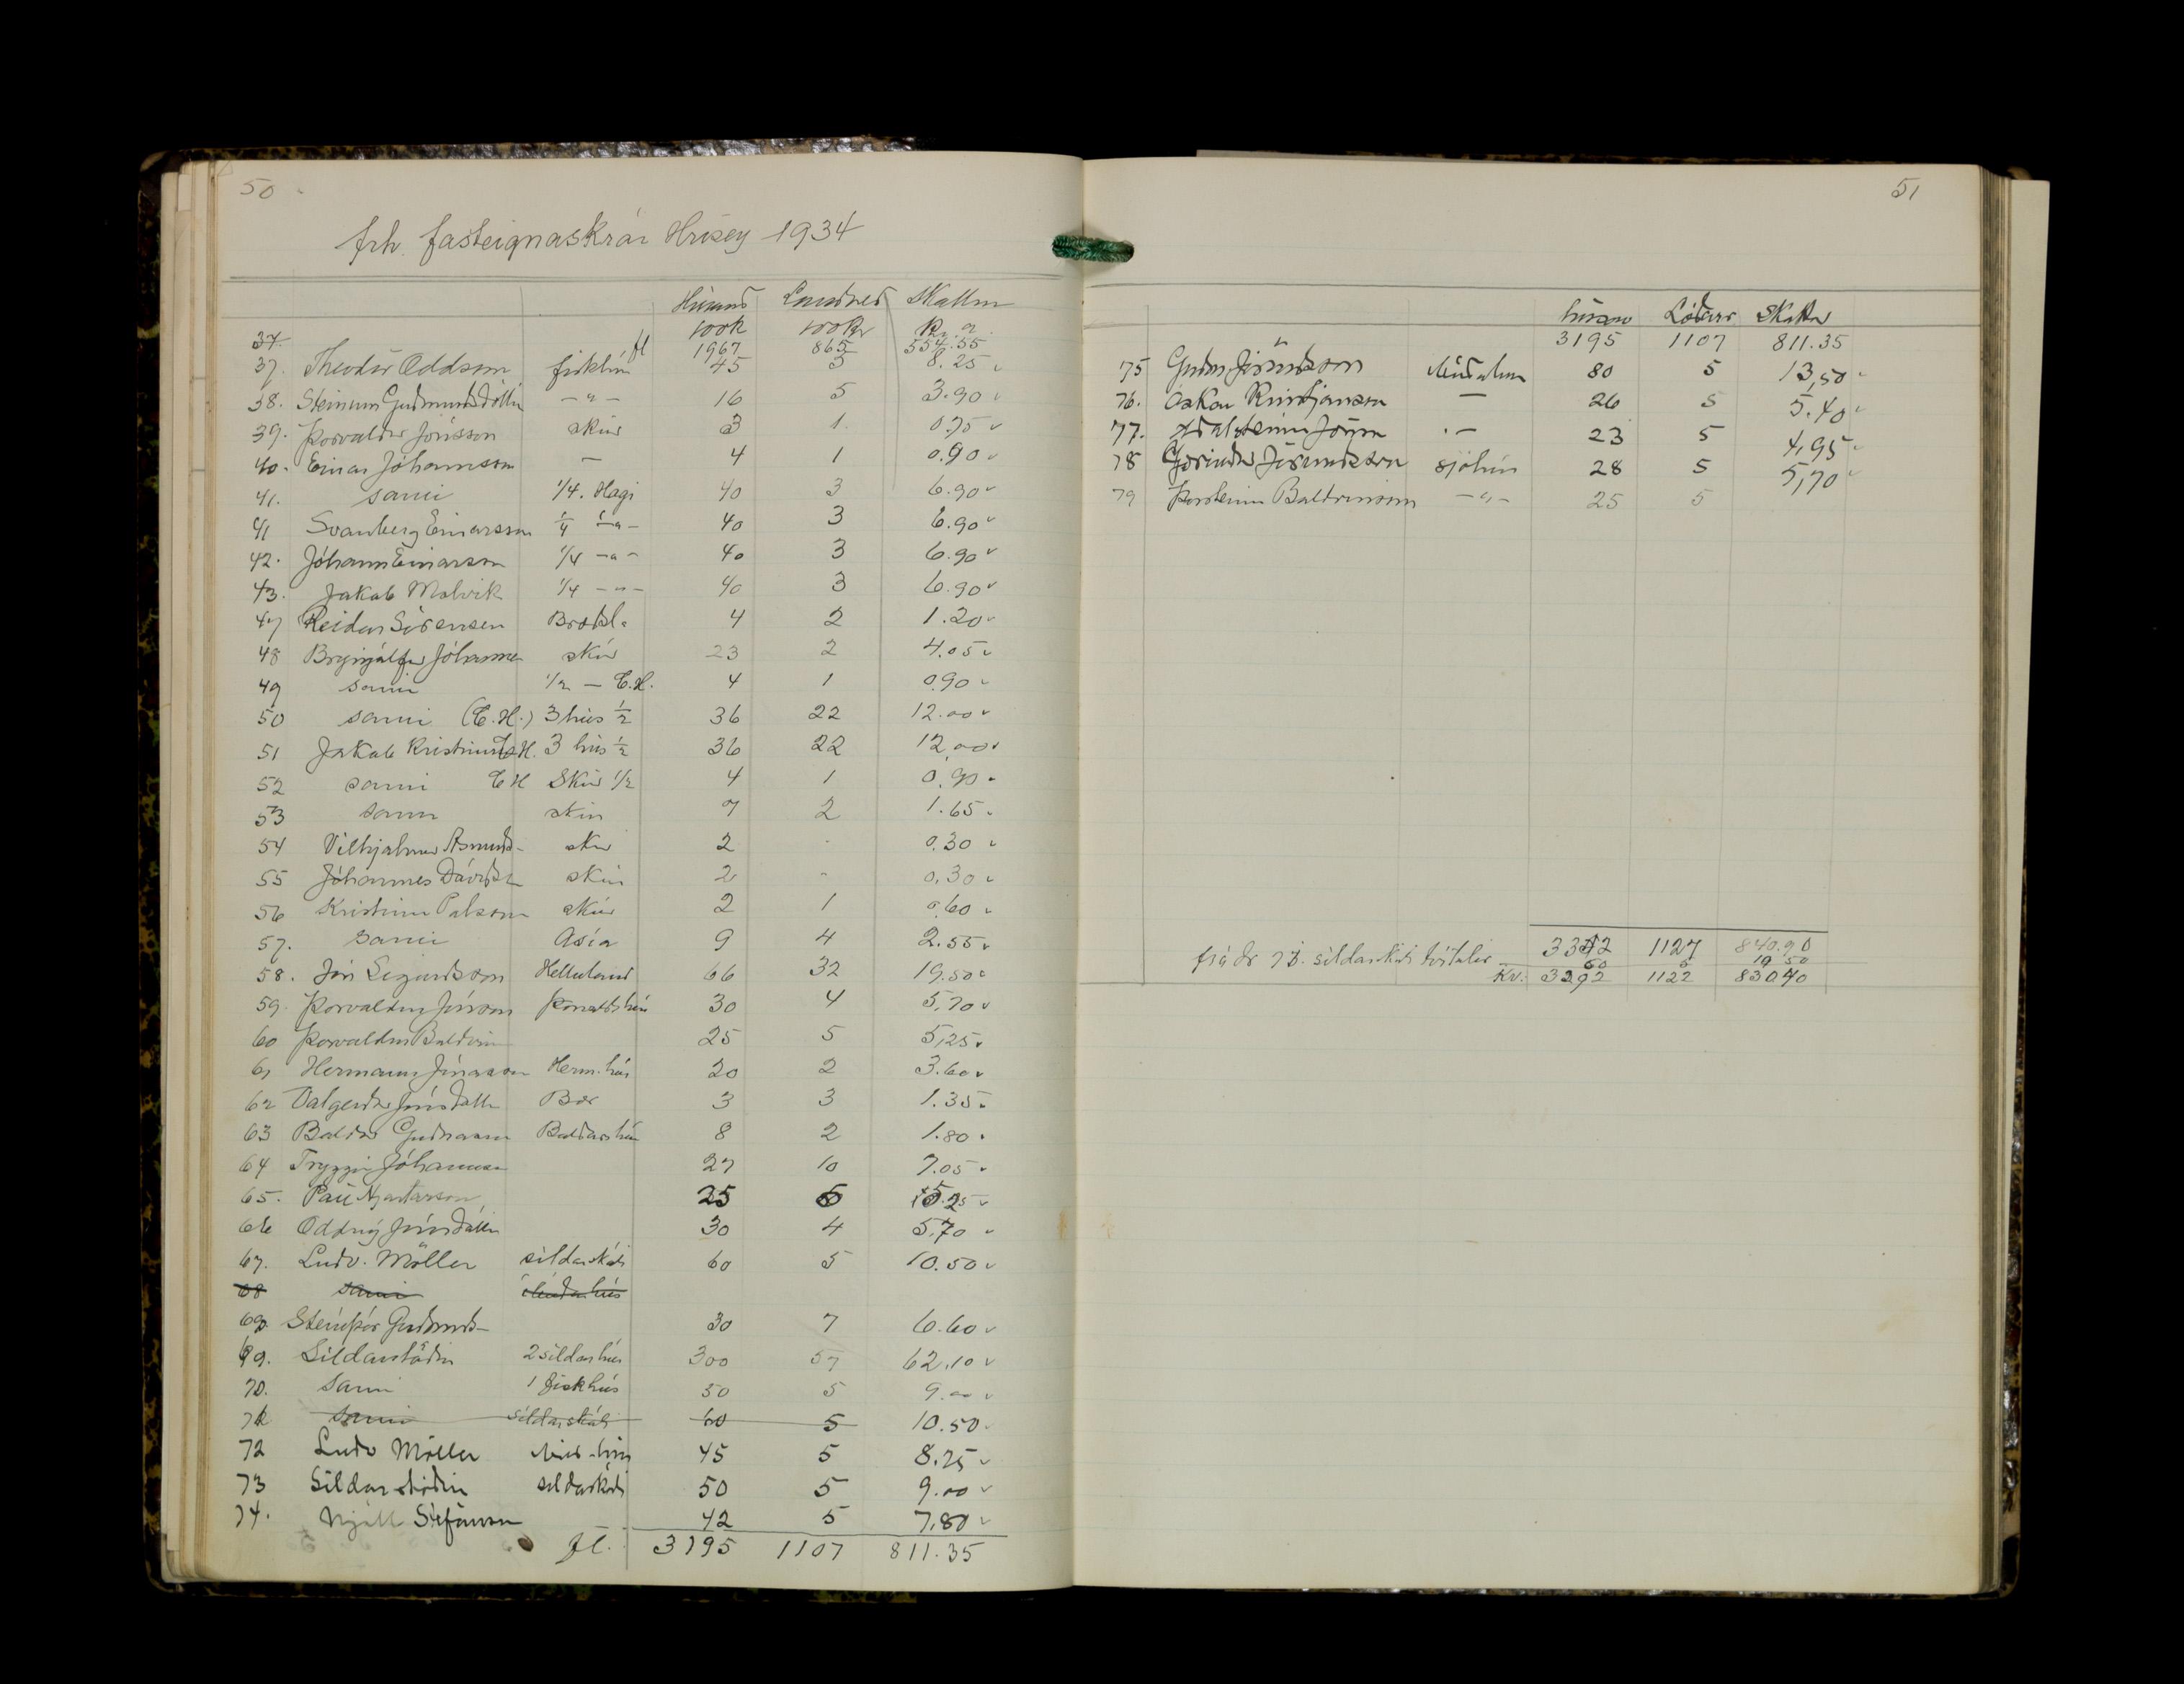 50
frh. fasteignaskrár Hrísey 1934
Húsanna Landsins Skattur
100 kr 100 kr kr. a.
37. fl 1967 865 554.55
37. Theodór Oddsson fiskhús 45 5 8.25
38. Steinunn Guðmundsdóttir - " - 16 5 3.90
39. Þorvaldur Jónsson skúr 3 1. 0.75
40. Einar Jóhannsson — 4 1 0.90
41. sami 1/4. Hagi 40 3 6.90
41 Svanberg Einarsson 1/4 - " - 40 3 6.90
42. Jóhann Einarsson 1/4 - " - 40 3 6.90
43. Jakob Malvik 1/4 - " - 40 3 6.90
47 Reidar Sörensen 4 2 1.20
48 Brynjólfur Jóhannes skúr 23 2 4.05
49 sami 1/2 — E.H. 4 1 0.90
50 sami (E.H.) 3 hús 1/2 36 22 12.00
51 Jakob Kristins E.H. 3 hús 1/2 36 22 12,00
52 sami E H Skúr 1/2 4 1 0.90
53 sami skúr 7 2 1.65
54 Vilhjálmur Ásmunds- skúr 2 - 0.30
55 Jóhannes Davíðs skúr 2 - 0.30
56 Kristinn Pálsson skúr 2 1 0.60
57. sami Asía 9 4 2.55
58. Jón Sigurdsson Helluland 66 32 19.50
59. Þorvaldur Jónsson Þorvaldshús 30 4 5.70
60 Þorvaldur Baldvin 25 5 5,25
61 Hermann Jónasson Herm. hús 20 2 3.60
62 Valgerdur Jónsdóttir Bær 3 3 1.35
63 Baldur Gudnason Baldurshús 8 2 1.80
64 Tryggvi Jóhannsson 27 10 7.05
65. Páll Hjartarson 25
66 Oddný Jónsdóttir 30 4 5.70
67. Ludv. Möller síldarskáli 60 5 10.50
68 sami
69. Steinþór Guðmunds- 30 7 6.60
69. Síldarstöðin 2 síldarhús 300 57 62.10
70. Sami 1 fiskhús 50 5 9.00
71 sami síldarskáli 60 5 10.50
72 Ludv Möller 45 5 8.25
73 Síldarstöðin síldarskáli 50 5 9.00
74. Njáll Stefánsson 42 5 7.80
fl. 3195 1107 811.35
51
húsanna Lóðar Skattur
3195 1107 811.35
75 Jörundsson 80 5 13,50
76. Óskar Kristjánsson — 26 5 5.40
77. Aðalsteinn .— 23 5 4,95
78 Jörundsson sjóhús 28 5 5,70
79 Þorsteinn Baldvinsson - " - 25 5
3342 1127 840.90
frá dr 71. síldarskáli 60 5 10 50
Kv: 3292 1122 830.40